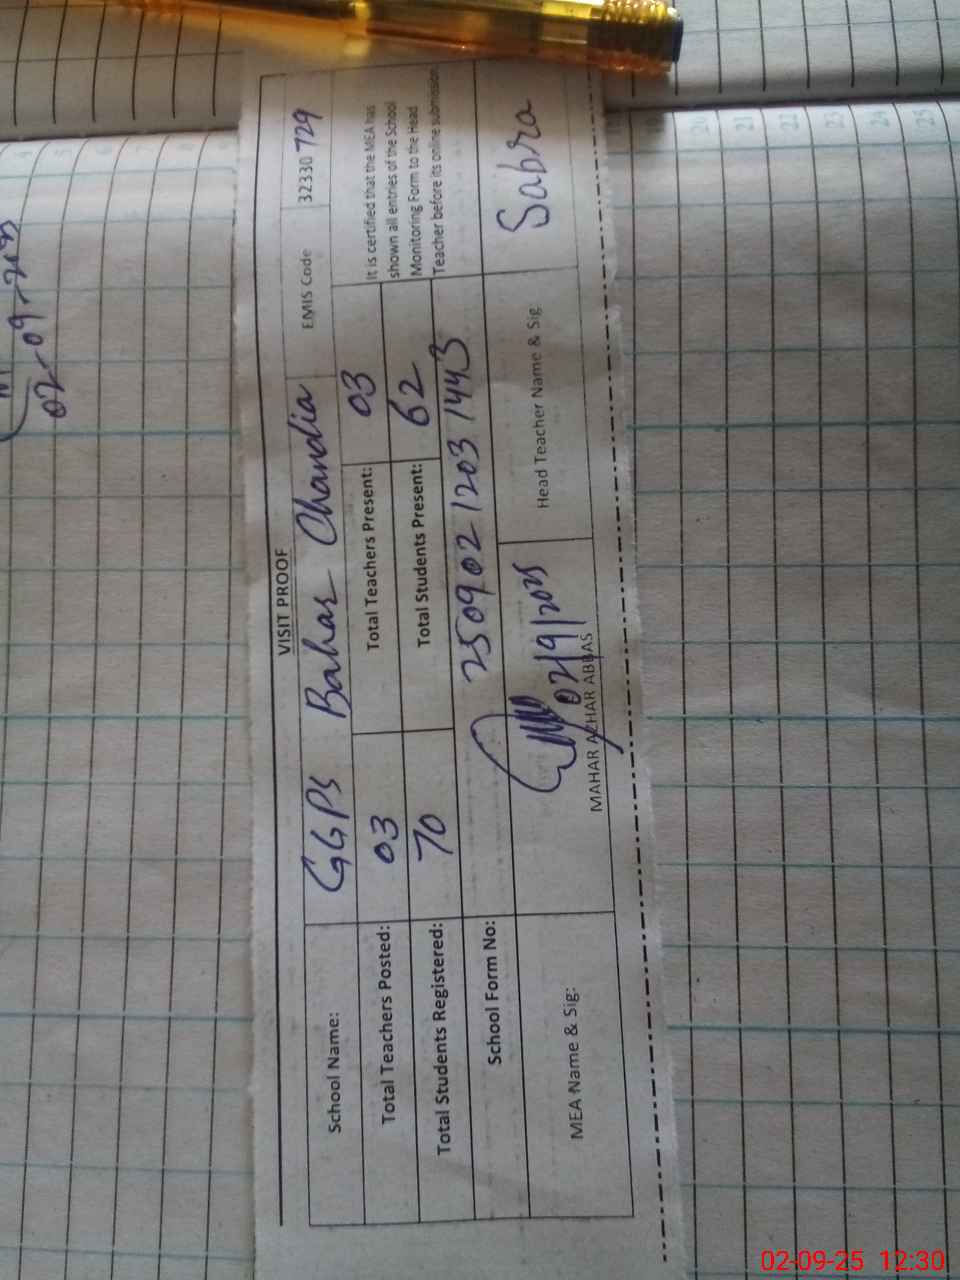 VISIT PROOF
School Name: GGPS Bahar Chandia EMIS Code 32330729
Total Teachers Posted: 03 Total Teachers Present: 03
Total Students Registered: 70 Total Students Present: 62
It is certified that the MEA has
shown all entries of the School
Monitoring Form to the Head
Teacher before its online submission
School Form No: 250902 1203 1443
MEA Name & Sig: 02/9/2025
MAHAR AZHAR ABBAS
Head Teacher Name & Sig Sabra
02-09-2025
20
21
22
23
24
25
02-09-25 12:30